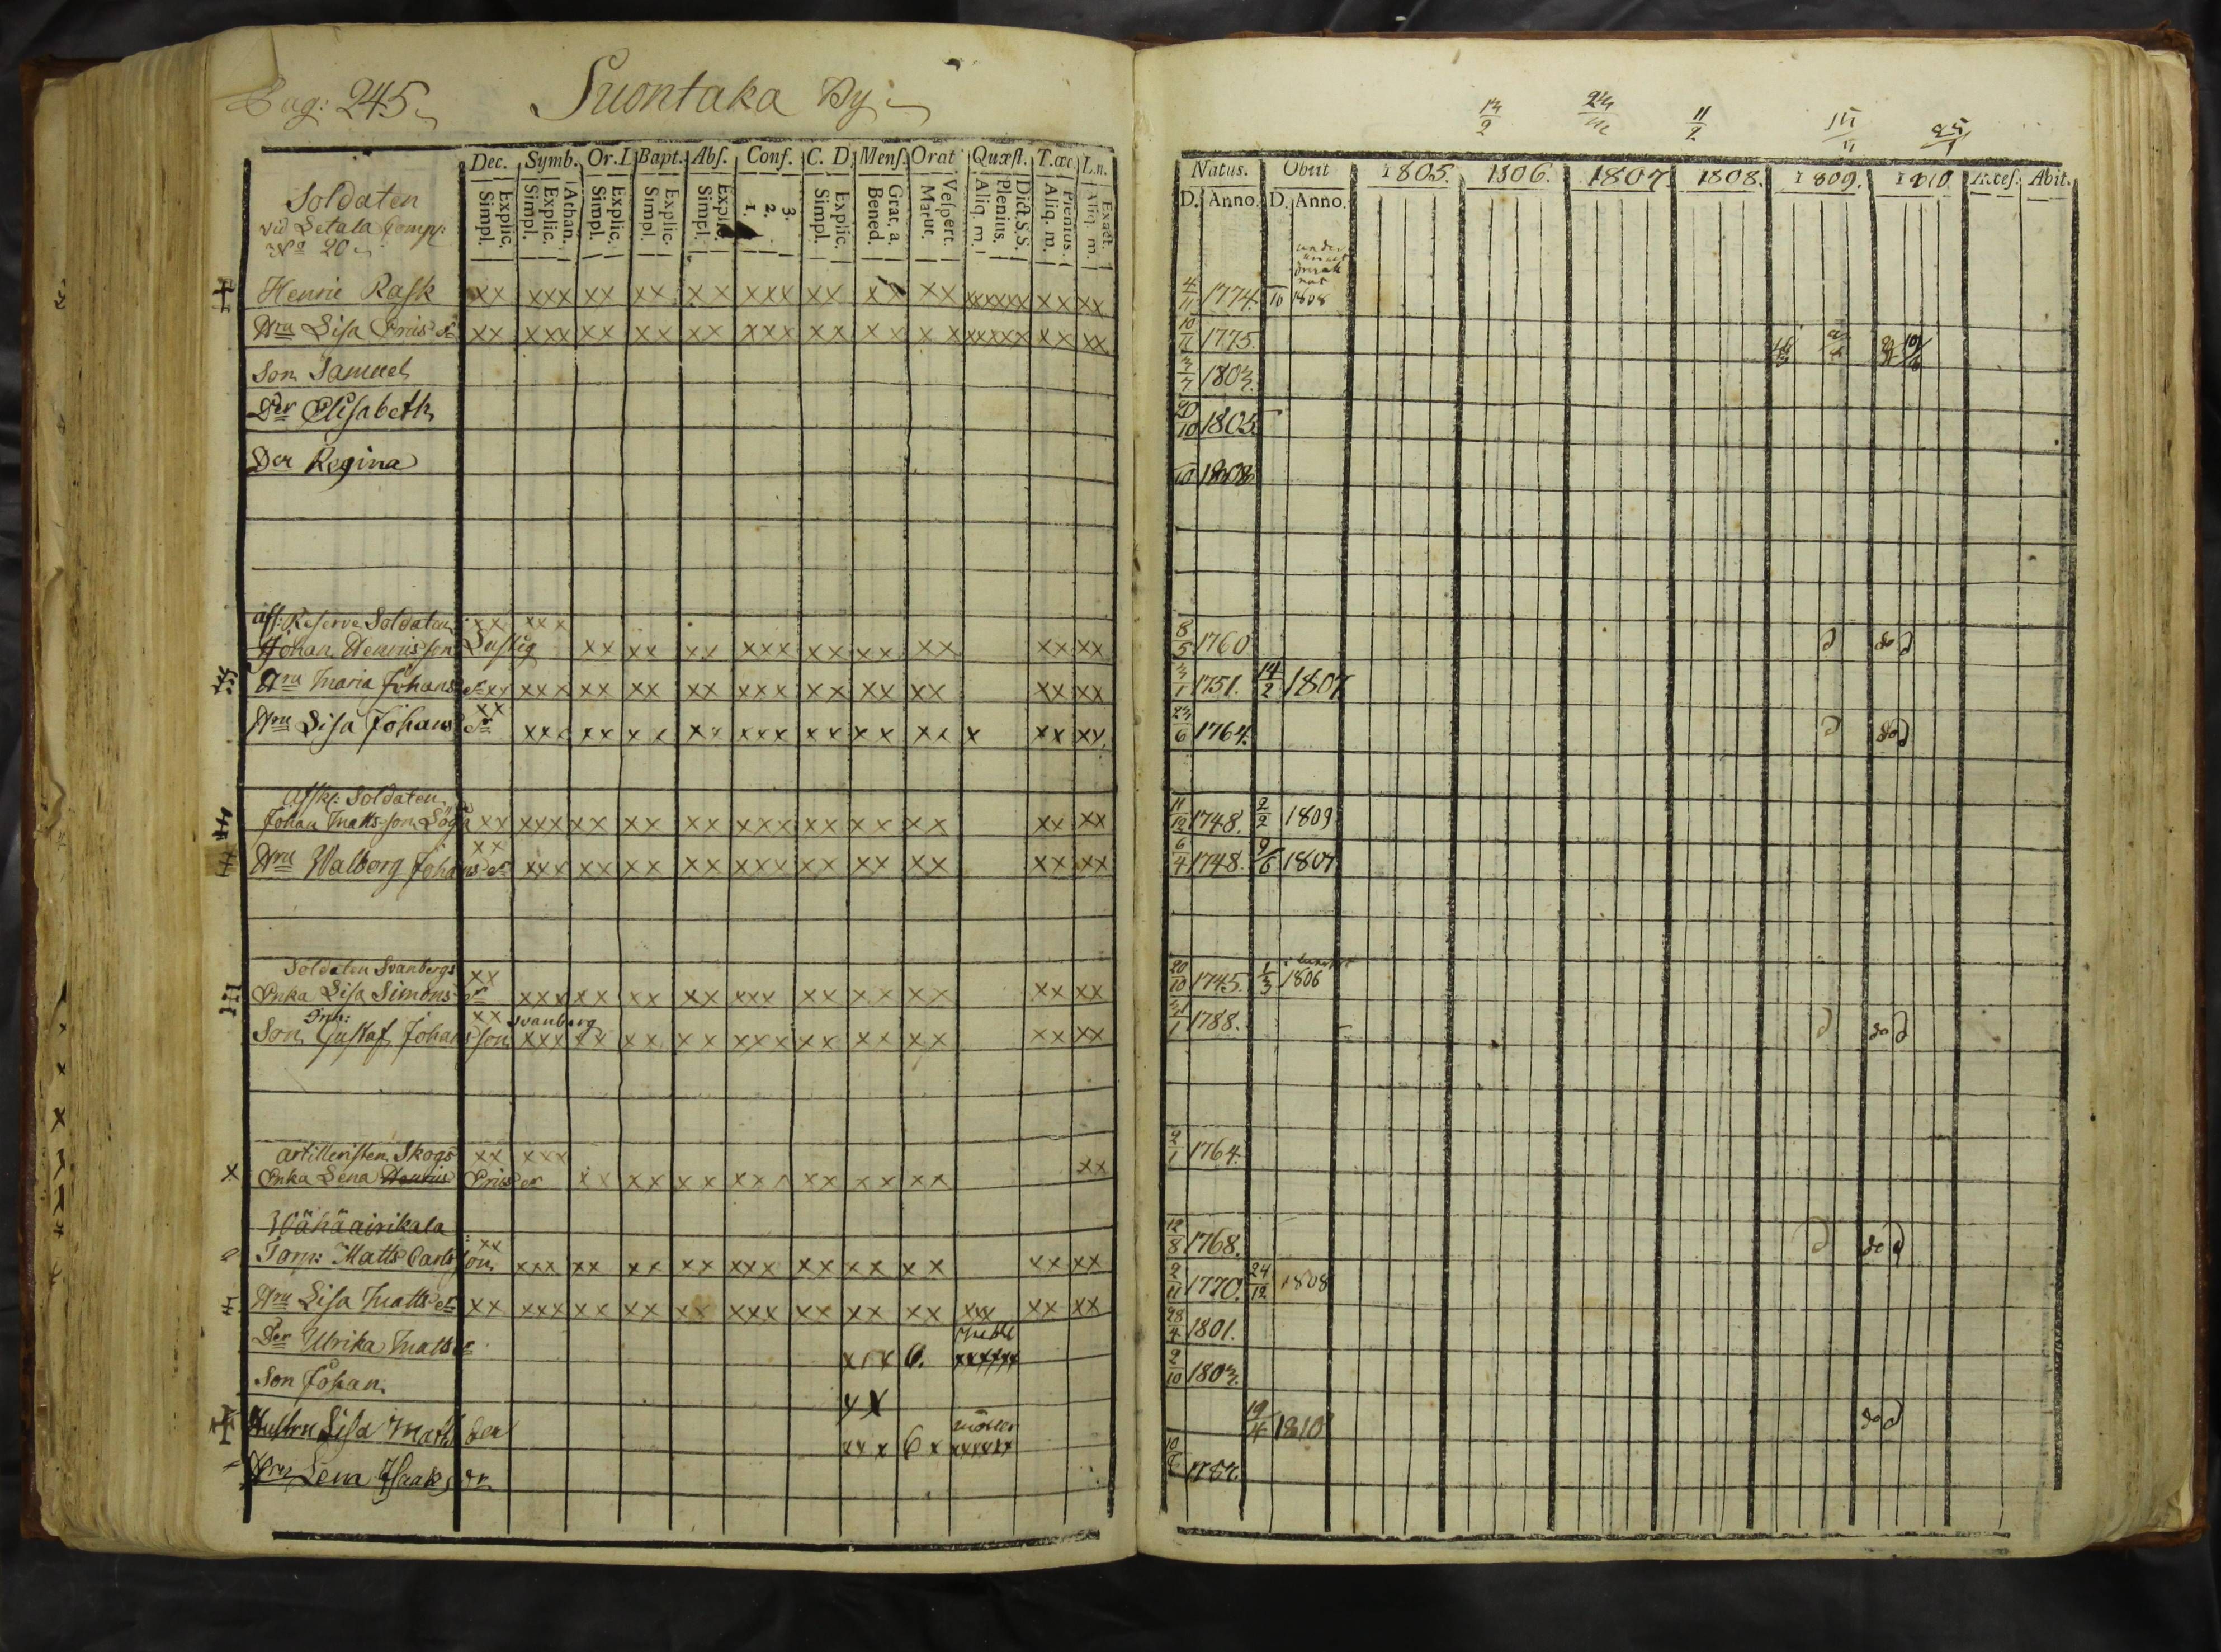 Pag: 245
Suontaka By
Dec. Symb. Or. D. Bapt. Abs. Conf. C. D. Mens. Orat. Quæst. T. œc. L.n.
Explic. Simpl.
Athan. Explic. Simpl.
Explic. Simpl.
Explic. Simpl.
Explic. Simpl.
3. 2. 1.
Explic. Simpl.
Grat. a. Bened.
Vespert. Matut.
Dict. S.S. Plenius. Aliq. m.
Plenius. Aliq. m.
Exact. Aliq. m.
Soldaten
vid Letala Comp:
No 20
Henric Rask xx xxx xx xx xx xxx xx xx xx xxxxxx xx xx
Hru Lisa Ericsdr xx xxx xx xx xx xxx xx xx xx xxxxxx xx xx
Son Samuel
Dtr Elisabeth
Der Regina
Afs: Reserve Soldaten xx xxx
Johan Henricsson Lustig xx xx xx xxx xx xx xx xx xx
Hru Maria Johansdr xx xxx xx xx xx xxx xx xx xx xx xx
Hru Lisa Johansdr xx xxx xx xx xx xxx xx xx xx x xx xx
Afsk: Soldaten
Johan Mattsson xx xxx xx xx xx xxx xx xx xx xx xx
Hru Walborg Johansdr xx xxx xx xx xx xxx xx xx xx xx xx
Soldaten Svanbergs xx
Enka Lisa Simonsdr xxx xx xx xx xxx xx xx xx xx xx
xx Svanberg
Son Gustaf Johansson xxx xx xx xx xxx xx xx xx xx xx
Artilleristen Skogs xx xxx
Enka Lena Henrics Ericsdr xx xx xx xxx xx xx xx xx
Wähäairikala
Torp: Matts Carlsson xx xxx xx xx xx xxx xx xx xx xx xx
Hru Lisa Mattsdr xx xxx xx xx xx xxx xx xx xx xxx xx xx
Der Ulrika Mattsdr xxx 6. xxxxxx
Son Johan xx
Hustru Lisa Matts der xxx 6 x xxxxxx
Hru Lena Isaksdr
11/2
Natus. Obiit 1805. 1806. 1807. 1808. 1809. 1810. Acces. Abit.
D. Anno. D. Anno.
4/11 1774. 10 1808
10/11 1775.
3/7 1803.
20/10 1805
10 1808
8/5 1760 do
3/1 1751. 14/2 1807
23/6 1764. do
11/12 1748. 2/2 1809
6/4 1748. 9/6 1807
20/10 1745. 1/3 1806
1788. do
2/1 1764.
12/8 1768. do
2/11 1770. 24/12 1808
28/4 1801.
2/10 1803.
19/4 1810 do
1787.